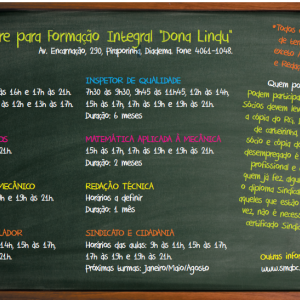 re para Formação Integral "Dona Lindu"
Av. Encarnação, 290, Piraporinha, Diadema. Fone 4061-1048.
às 16h e 17h às 21h.
às 12h e 13h às 17h.
OS
21h.
MECÂNICO
h e 19h às 21h.
LADOR
14h, 15h às 17h,
h.
INSPETOR DE QUALIDADE
7h30 às 9h30, 9h45 às 11h45, 12h às 14h,
15h às 17h, 17h às 19h e 19h às 21h.
Duração: 6 meses
MATEMÁTICA APLICADA À MECÂNICA
15h às 17h, 17h às 19h e 19h às 21h.
Duração: 2 meses
REDAÇÃO TÉCNICA
Horários a definir
Duração: 1 mês
SINDICATO E CIDADANIA
Horários das aulas: 9h às 11h, 15h às 17h,
17h às 19h e 19h às 21h.
Próximas turmas: Janeiro/Maio/Agosto
*Todos o
de ter
exceto
e Redaç
Quem po
Podem participar
Sócios devem lev
a cópia do RG,
de carteirinha
sócio e cópia d
desempregado é
profissional e
quem já fez algu
o diploma Sindica
aqueles que estão
vez, não é necess
certificado Sindic
Outras infor
www.smabc